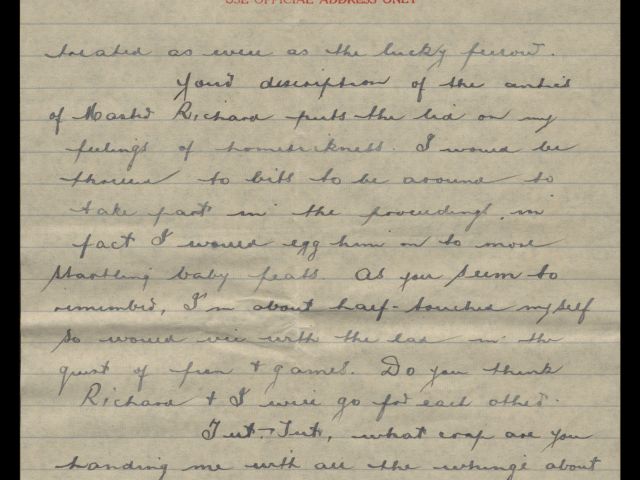 USE OFFICIAL ADDRESS ONLY
treated as well as the lucky person.
Your description of the antics
of Master Richard puts the lid on my
feelings of homesickness. I would be
thrilled to bits to be around to
take part in the proceedings, in
fact I would egg him on to more
startling baby feats. As you seem to
remember, I'm about half-touched myself
so would vie with the lad in the
quest of fun & games. Do you think
Richard & I will go for each other.
Tut-Tut, what crap are you
handing me with all the whinge about